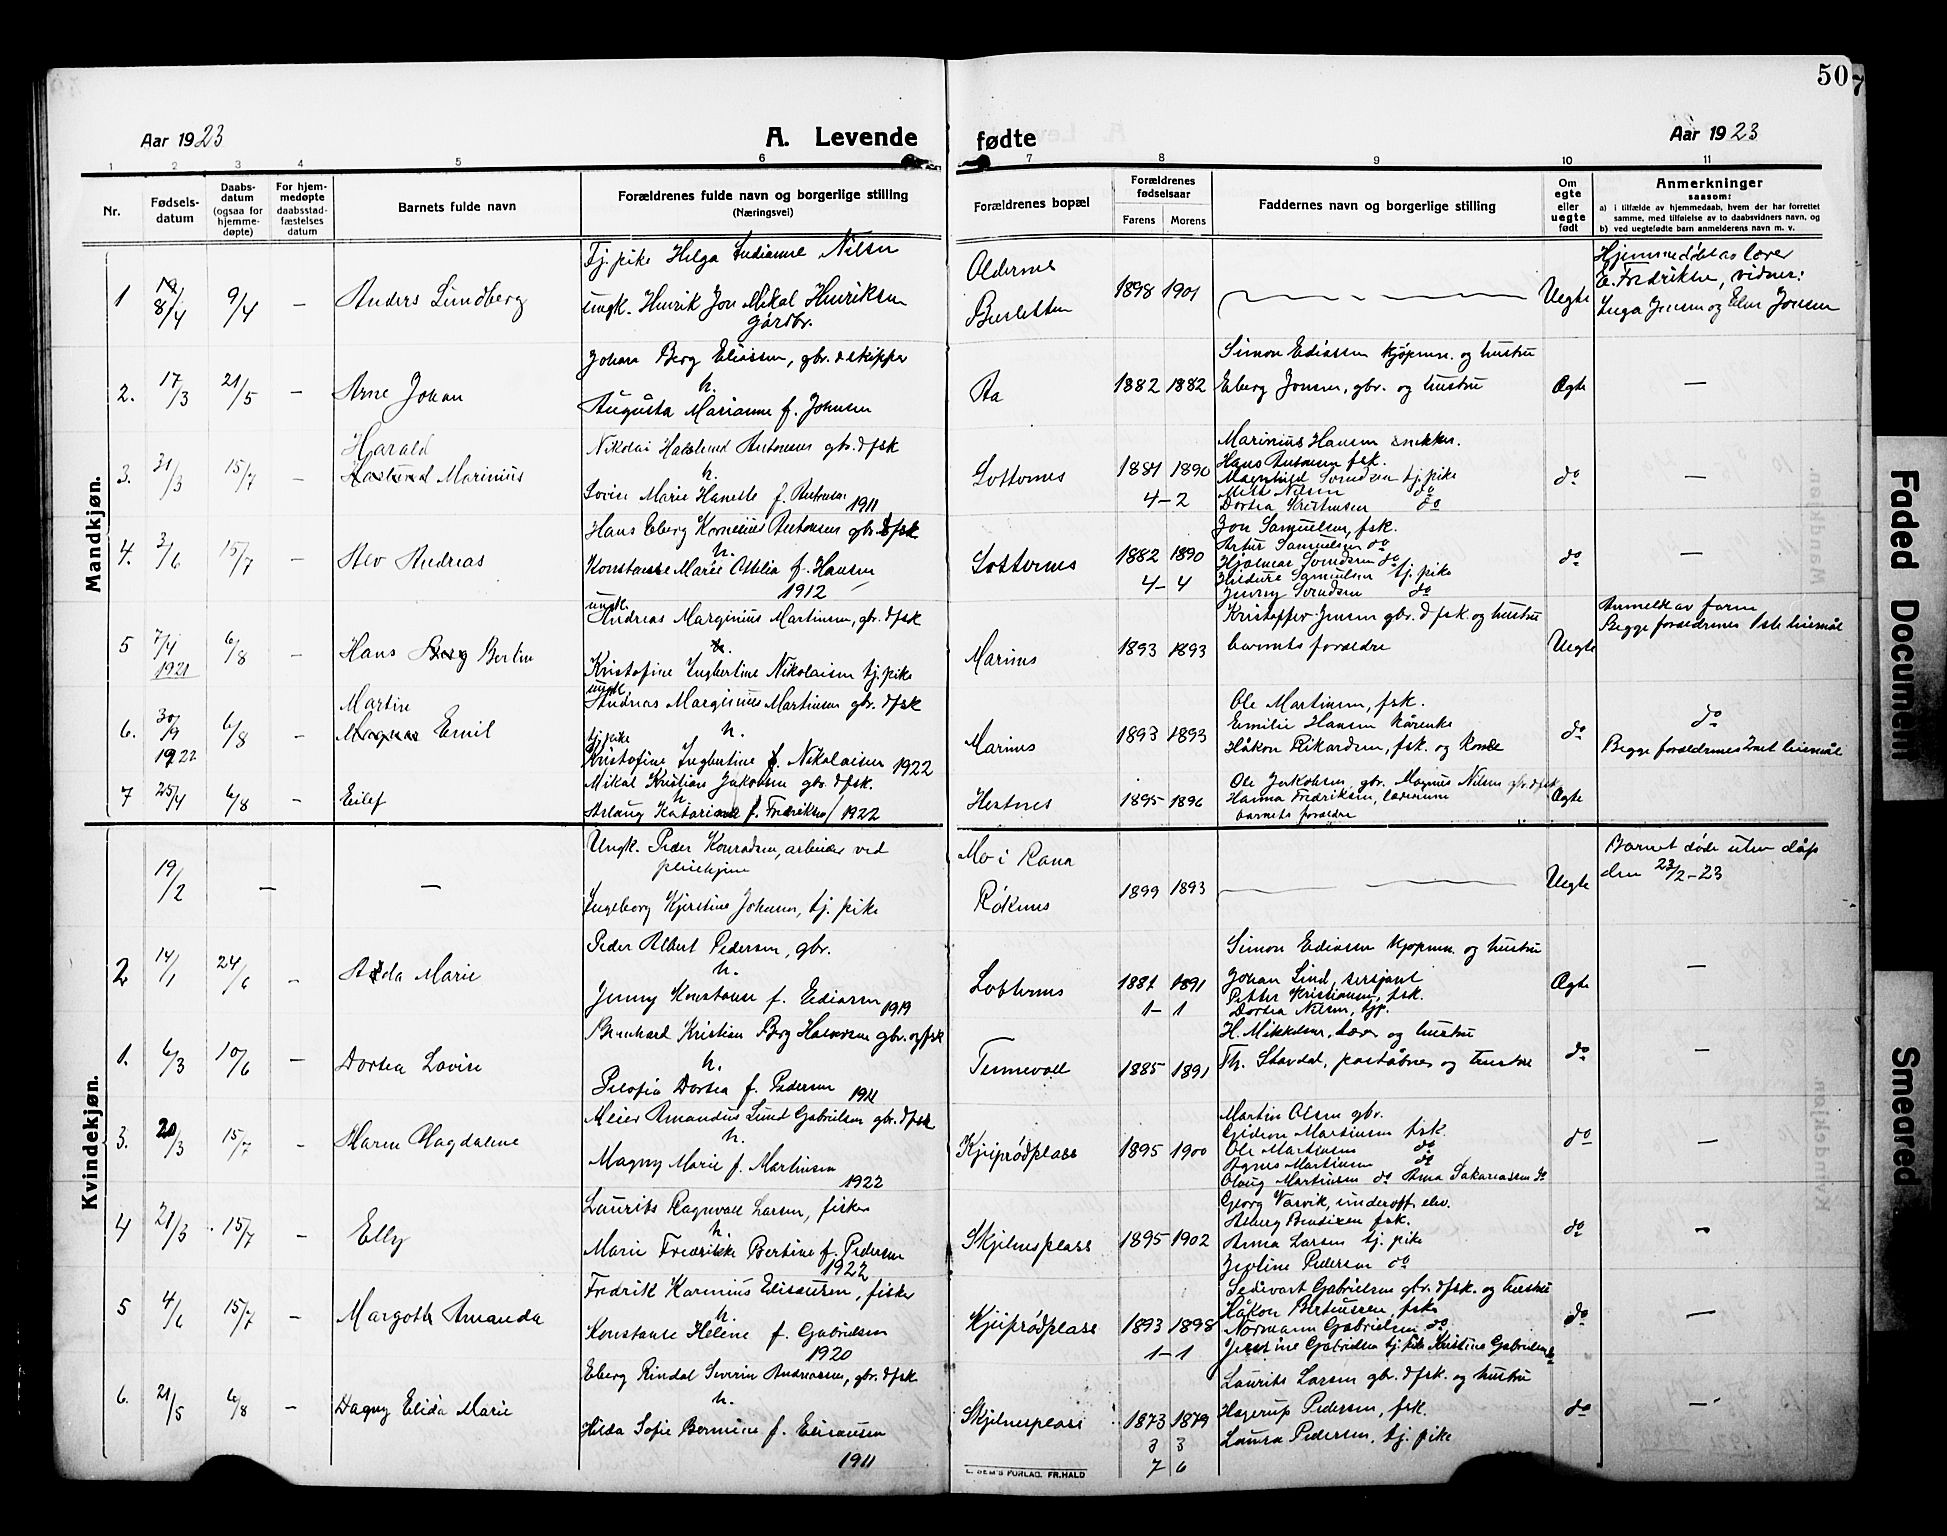 50
Aar 1923
A. Levende
fødte
Aar 1923
1 2 3 4 5 6 7 8 9 10 11
Nr.
Fødsels-
datum
Daabs-
datum
(ogsaa for
hjemme-
døpte)
For hjem-
medøpte
daabsstad-
fæstelses
datum
Barnets fulde navn
Forældrenes fulde navn og borgerlige stilling
(Næringsvei)
Forældrenes bopæl
Forældrenes
fødselsaar
Farens Morens
Faddernes navn og borgerlige stilling
Om
egte
eller
uegte
født
Anmerkninger
saasom:
a) i tilfælde av hjemmedaab, hvem der har forrettet
samme, med tilføielse av to daabsvidners navn, og
b) ved uegtefødte barn anmelderens navn m. v.
Mandkjøn.
Tj. pike Helga Nilsen
1 8/4 9/4 – Anders Lundberg
ungk. Henrik Jon Mikal Henriksen
Gårdbr.
1898 1901
Uegte
Hjemmedøbt av lærer
E. Fredriksen, vidner:
Inga Jensen og Elen Jonsen
Johan Berg Eliassen, gbr. & skipper
2. 17/3 21/5 – Arne Johan
h.
Augusta Marianne f. Johnsen
Aa
1882 1882
Simon Ediassen kjøpmn. og hustru
Eberg Jonsen, gbr. og hustru
Ægte
—
Harald
3. 31/3 15/7 – Marinius
Nikolai Haslund Antonsen gbr. & fsk
h.
Lovise Marie Hanelle f. Antonsen
1911
1884 1890
4–2
Marinius Hansen snekker.
Hans Antonsen fsk.
tj. pike
Nilsen do
Dortea Kristensen do
do
—
4. 3/6 15/7 – Andreas
Hans Eberg Kornelius Antonsen gbr. & fsk
h.
Konstanse Marie Otelia f. Hansen
1912
1882 1890
4–4
Jon Samuelsen, fsk.
Artur Samuelsen do
Hjalmar Svendsen do
Samuelsen tj. pike
Jenny Svendsen do
do
—
5 7/4 1921 6/8 Hans Berg Bertin
ungk.
Andreas Marginius Martinsen, gbr. & fsk
h.
Kristofine Ingbertine Nikolaisen tj. pike
Marines
1893 1893
Kristoffer Jensen gbr. & fsk. og hustru
barnets forældre
Uegte
Anmeldt av faren
Begge forældrenes 1ste leiermål
Martin
6. 30/9 1922 6/8 – Magnus Emil
ungk.
Andreas Marginius Martinsen gbr. & fsk
tj. pike h.
Kristofine Ingbertine f. Nikolaisen 1922
Marines
1893 1893
Ole Martinsen, fsk.
Emilie Hansen kårenke
Håkon Rikardsen, fsk. og kone
do
do
Begge forældrenes 2net leiermål
7 25/4 6/8 – Eilef
Mikal Kristian Jakobsen gbr. & fsk.
h.
Aslaug Katarine f. Fredriksen 1922
Hestnes
1895 1896
Ole Jakobsen, gbr. Magnus Nilsen gbr. & fsk
Hanna Fredriksen, lærerinne
barnets forældre
Ægte
Kvindekjøn.
19/2 — —
Ungk. Peder Konradsen, arbeider ved
Ingeborg Kjerstine Johnsen, tj. pike
Mo i Rana
Røknes
1899 1893
Uegte
Barnet døde uten dåp
den 23/2–23
2 14/1 24/6 – Alda Marie
Peder Albert Pedersen, gbr.
h.
Jenny Konstanse f. Ediassen
1919
1881 1891
1–1
Simon Ediassen kjøpmn. og hustru
Johan Lind, sersjant
Petter Kristiansen, fsk.
Dortea Nilsen, tjp.
Ægte
—
1. 6/3 10/6 – Dortea Lovise
Bernhard Kristian Berg Halvorsen gbr. og fsk
h.
Dortea f. Pedersen
1911
Tennevoll
1885 1891
H. Mikkelsen, Lærer og hustru
Th. Stavdal, poståbner og hustru
do
—
3. 20/3 15/7 – Karen Magdalene
Meier Amandus Lund Gabrielsen gbr. & fsk
h.
Magny Marie f. Martinsen
1922
Kjeiprødplass
1895 1900
Martin Olsen gbr.
Gideon Martinsen fsk.
Ole Martinsen do
Agnes Martinsen do
Olaug Martinsen do Anna Sakariassen do
do
—
4 21/3 15/7 – Elly
Laurits Ragnvall Larsen, fisker
h.
Marie Fredrikke Bertine f. Pedersen
1922
Skjelnesplass
1895 1902
Georg Vasvik, underoff. elev.
Asberg Bendixen fsk.
Anna Larsen tj. pike
Pedersen do
do
—
5 4/6 15/7 – Margoth Amanda
Fredrik Karinius Elisæusen, fisker
h.
Konstanse Helene f. Gabrielsen
1920
Kjeiprødplass
1893 1898
1–1
Sedivart Gabrielsen gbr. & fsk. og hustru
Håkon Berteussen, fsk.
Normann Gabrielsen do
Jensine Gabrielsen tj. pike Kristine Gabrielsen do
do
—
6. 21/5 6/8 – Dagny Elida Marie
Eberg Rindal Severin Andreassen, gbr. & fsk.
h.
Hilda Sofie Bernine f. Elisæusen
1911
Skjelnesplass
1873 1879
3 3
7 6
Laurits Larsen gbr. & fsk. og hustru
Hagerup Pedersen, fsk.
Laura Pedersen, tj. pike
do
—
E. SEM'S FORLAG. FR.HALD
Faded Document
Smeared